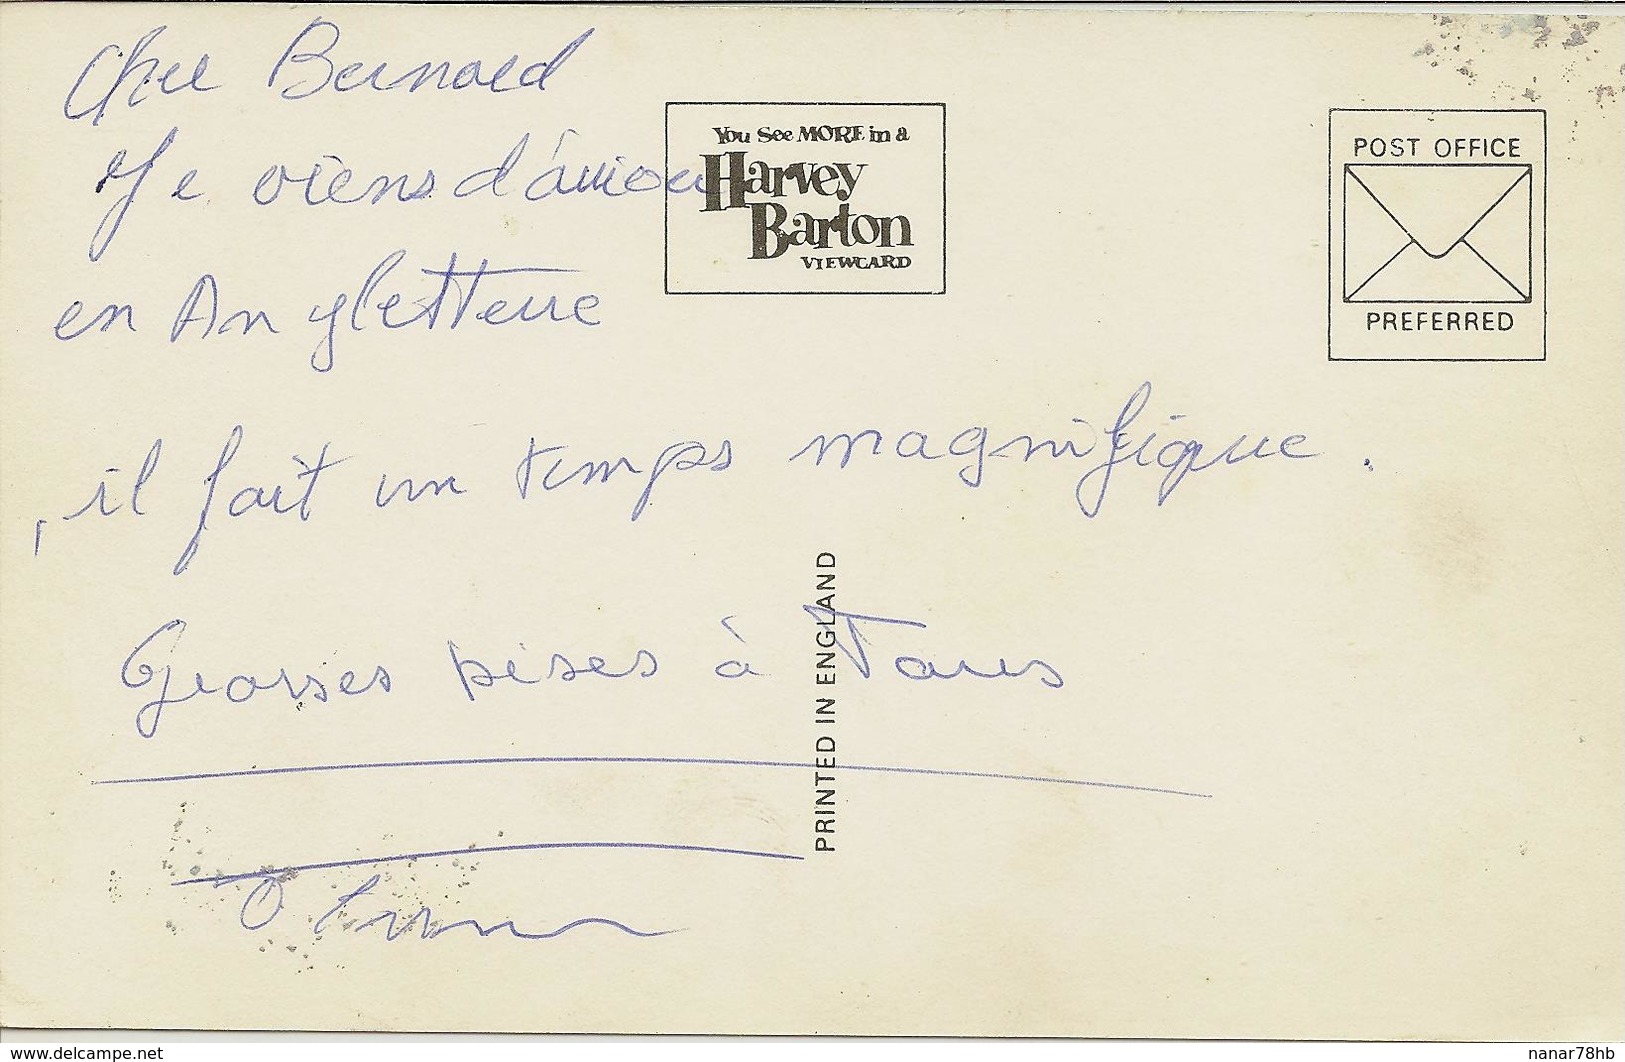 Cher Bernard
Je viens d'
en Angletterre
il fait un temps magnifique.
Georges bises à Tous
You See MORE in a
Harvey
Barton
VIEWCARD
POST OFFICE
PREFERRED
PRINTED IN ENGLAND
www.delcampe.net
nanar78hb